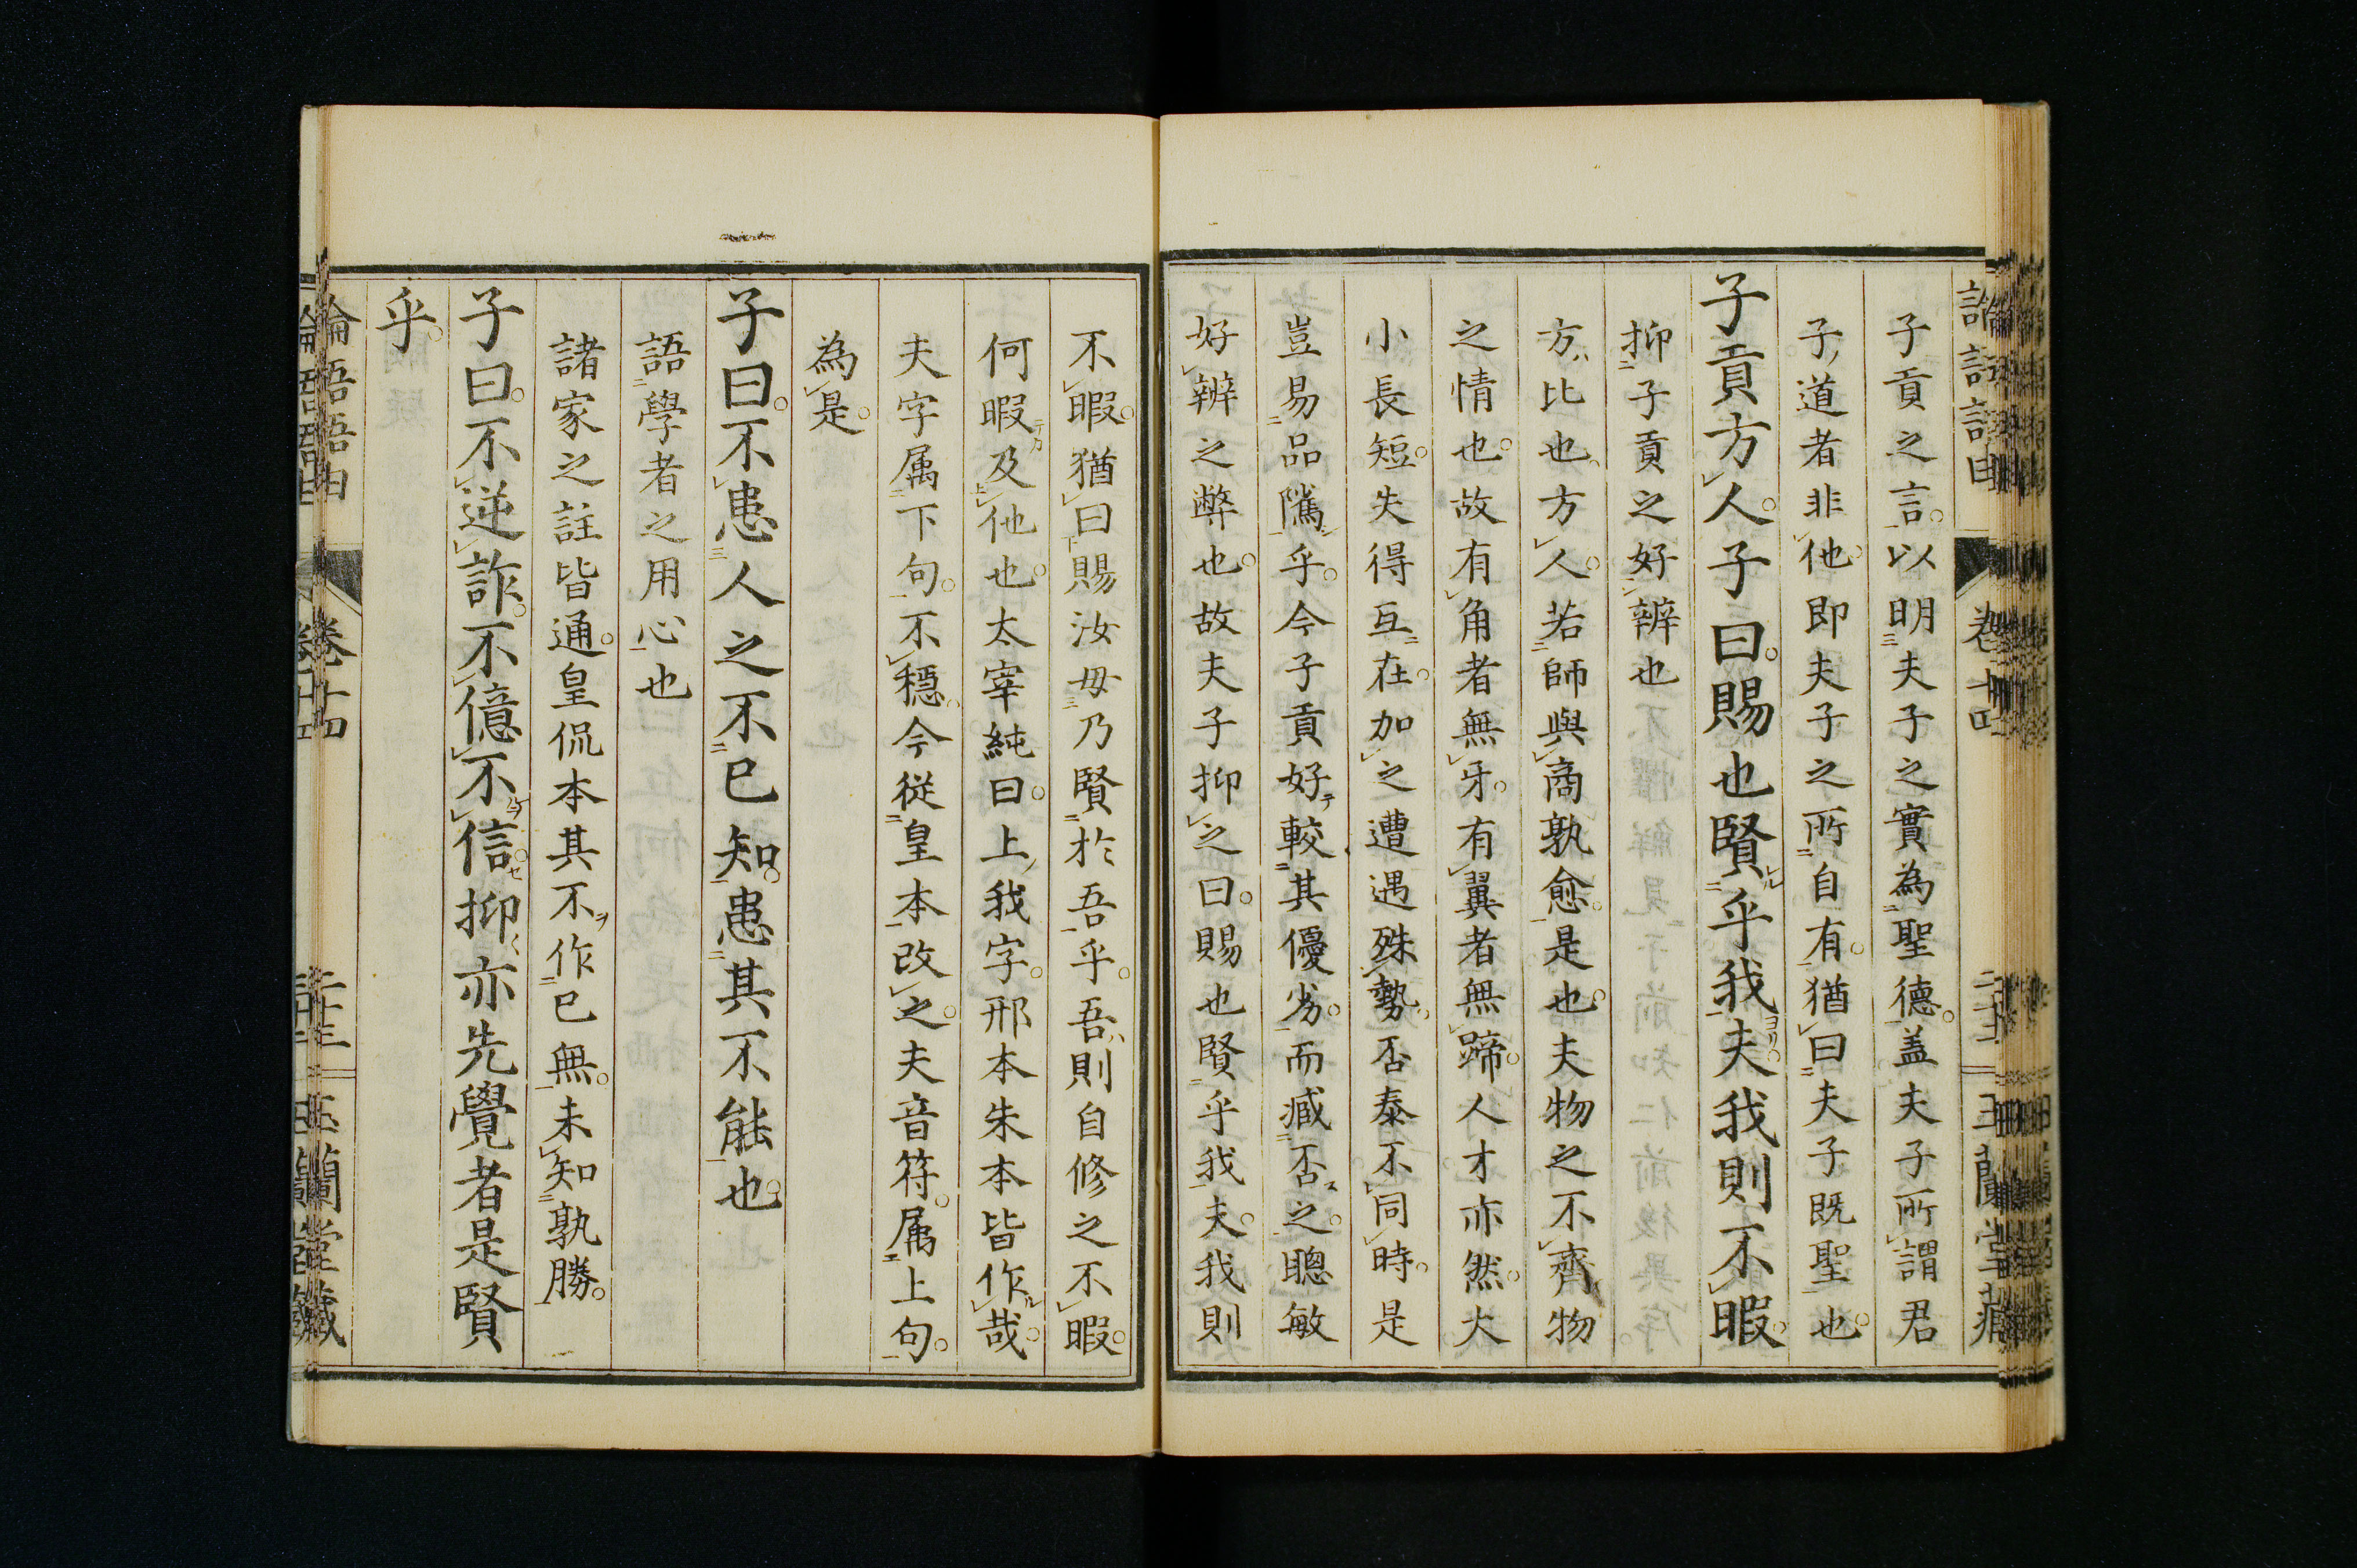 子貢之言。以明夫子之實為聖德。盖夫子所謂君
子道者非他。即夫子之所自有。猶曰夫子既聖也。
子貢方人。子曰。賜也賢乎我夫。我則不暇。
抑子貢之好辨也
方比也。方人。若師與商孰愈。是也。夫物之不齊物
之情也。故有角者無牙。有翼者無蹄。人才亦然。大
小長短。失得互在。加之遭遇殊勢。否泰不同時。是
豈易品隲乎。今子貢好較其優劣。而臧否之。聰敏
好辨之弊也。故夫子抑之曰。賜也賢乎我夫。我則
不暇。猶曰賜汝毋乃賢於吾乎。吾則自修之不暇。
何暇及他也。太宰純曰。上我字。邢本朱本皆作哉。
夫字属下句。不穩。今從皇本改之。夫音符。属上句。
為是。
子曰。不患人之不已知。患其不能也。
語學者之用心也
諸家之註皆通。皇侃本其不作已無。未知孰勝。
子曰。不逆詐。不億不信。抑亦先覺者是賢
乎。
論語語由
卷十四
玉蘭堂藏